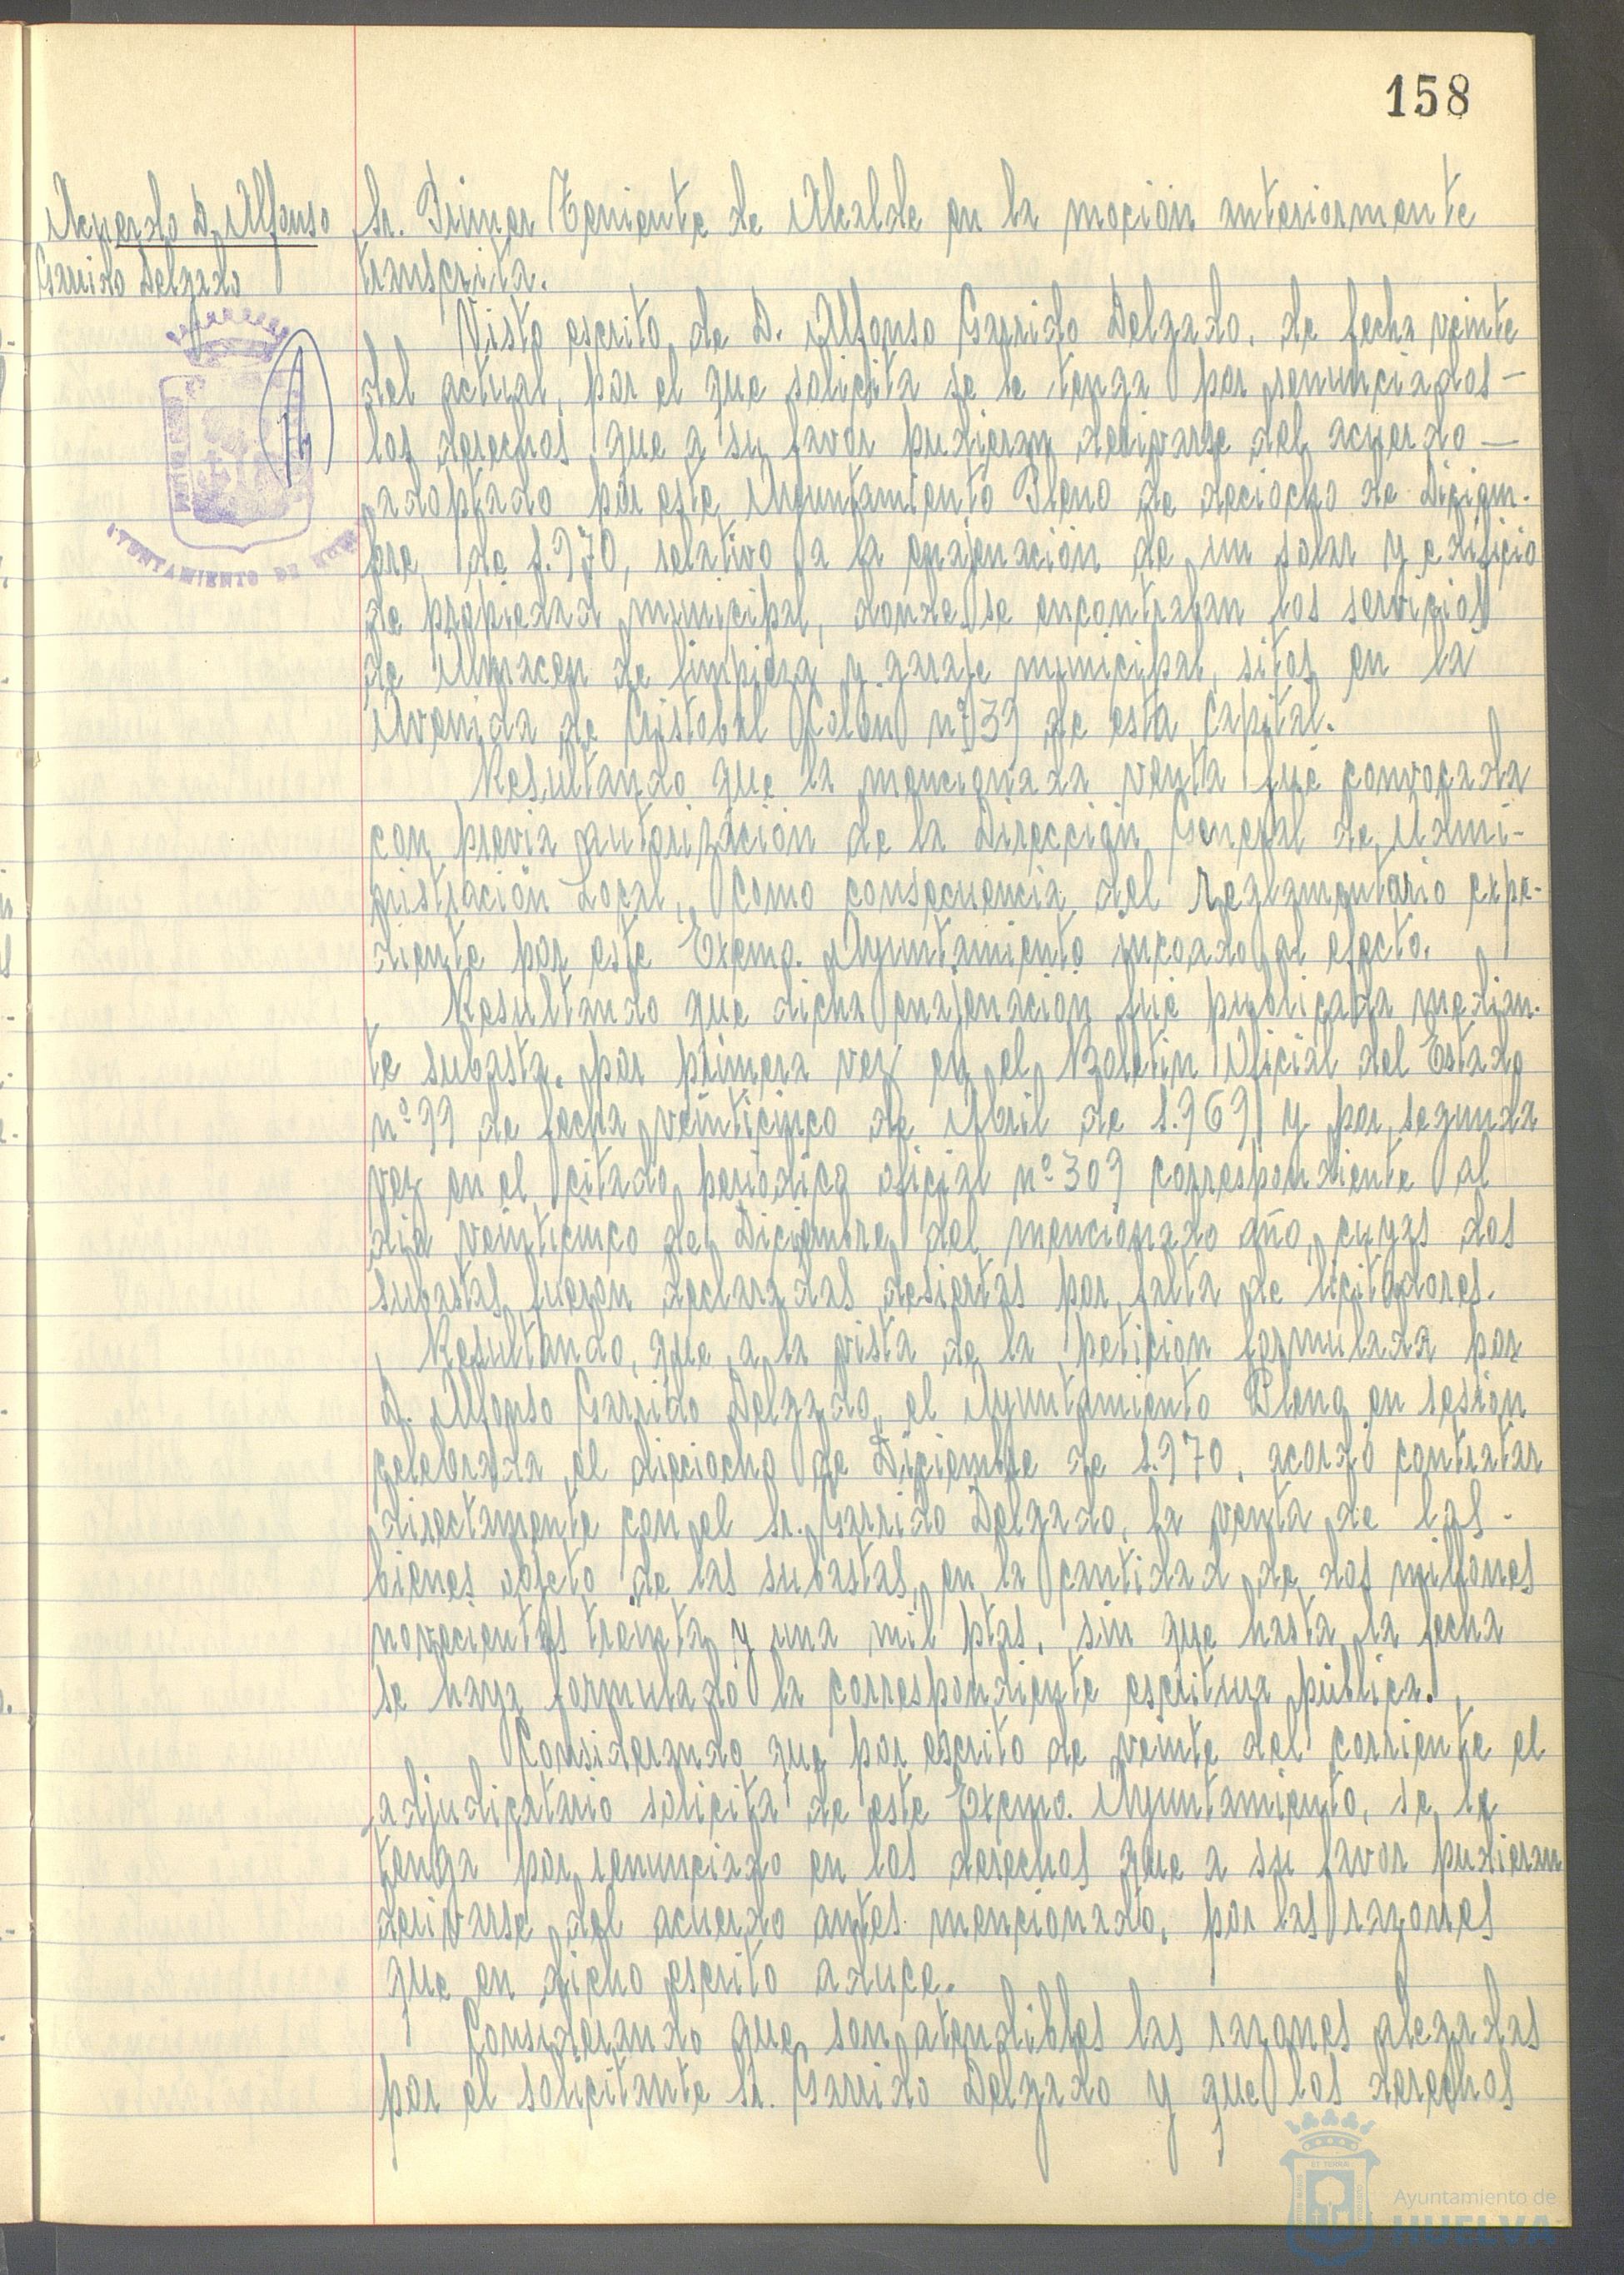 158
Acuerdo D. Alfonso
Garrido Delgado
Sr. Primer Teniente de Alcalde en la moción anteriormente
transcrita.
Visto escrito de D. Alfonso Garrido Delgado, de fecha veinte
del actual, por el que solicita se le tenga por renunciados-
los derechos que a su favor pudieran derivarse del acuerdo-
adoptado por este Ayuntamiento Pleno de dieciocho de Diciem-
bre de 1.970, relativo a la enajenación de un solar y edificio
de propiedad municipal, donde se encontraban los servicios
de Almacen de limpieza y garaje municipal, sitos en la
Avenida de Cristobal Colón nº 39 de esta Capital.
Resultando que la mencionada venta fué convocada
con previa autorización de la Dirección General de Admi-
nistración Local, como consecuencia del reglamentario expe-
diente por este Excmo. Ayuntamiento incoado al efecto.
Resultando que dicha enajenación fué publicada median-
te subasta, por primera vez en el Boletín Oficial del Estado
nº 99 de fecha veinticinco de Abril de 1.969 y por segunda
vez en el citado periódico oficial nº 309 correspondiente al
dia veinticinco de Diciembre del mencionado año, cuyas dos
subastas fueron declaradas desiertas por falta de licitadores.
Resultando, que a la vista de la petición formulada por
D. Alfonso Garrido Delgado, el Ayuntamiento Pleno en sesión
celebrada el dieciocho de Diciembre de 1.970, acordó contratar
directamente con el Sr. Garrido Delgado, la venta de los-
bienes objeto de las subastas, en la cantidad de dos millones
novecientas treinta y una mil ptas, sin que hasta la fecha
se haya formulado la correspondiente escritura pública.
Considerando que por escrito de veinte del corriente el
adjudicatario solicita de este Excmo. Ayuntamiento, se le
tenga por renunciado en los derechos que a su favor pudieran
derivarse del acuerdo antes mencionado, por las razones
que en dicho escrito aduce.
Considerando que son atendibles las razones alegadas
por el solicitante Sr. Garrido Delgado y que los derechos
AYUNTAMIENTO DE
Ayuntamiento de
HUELVA